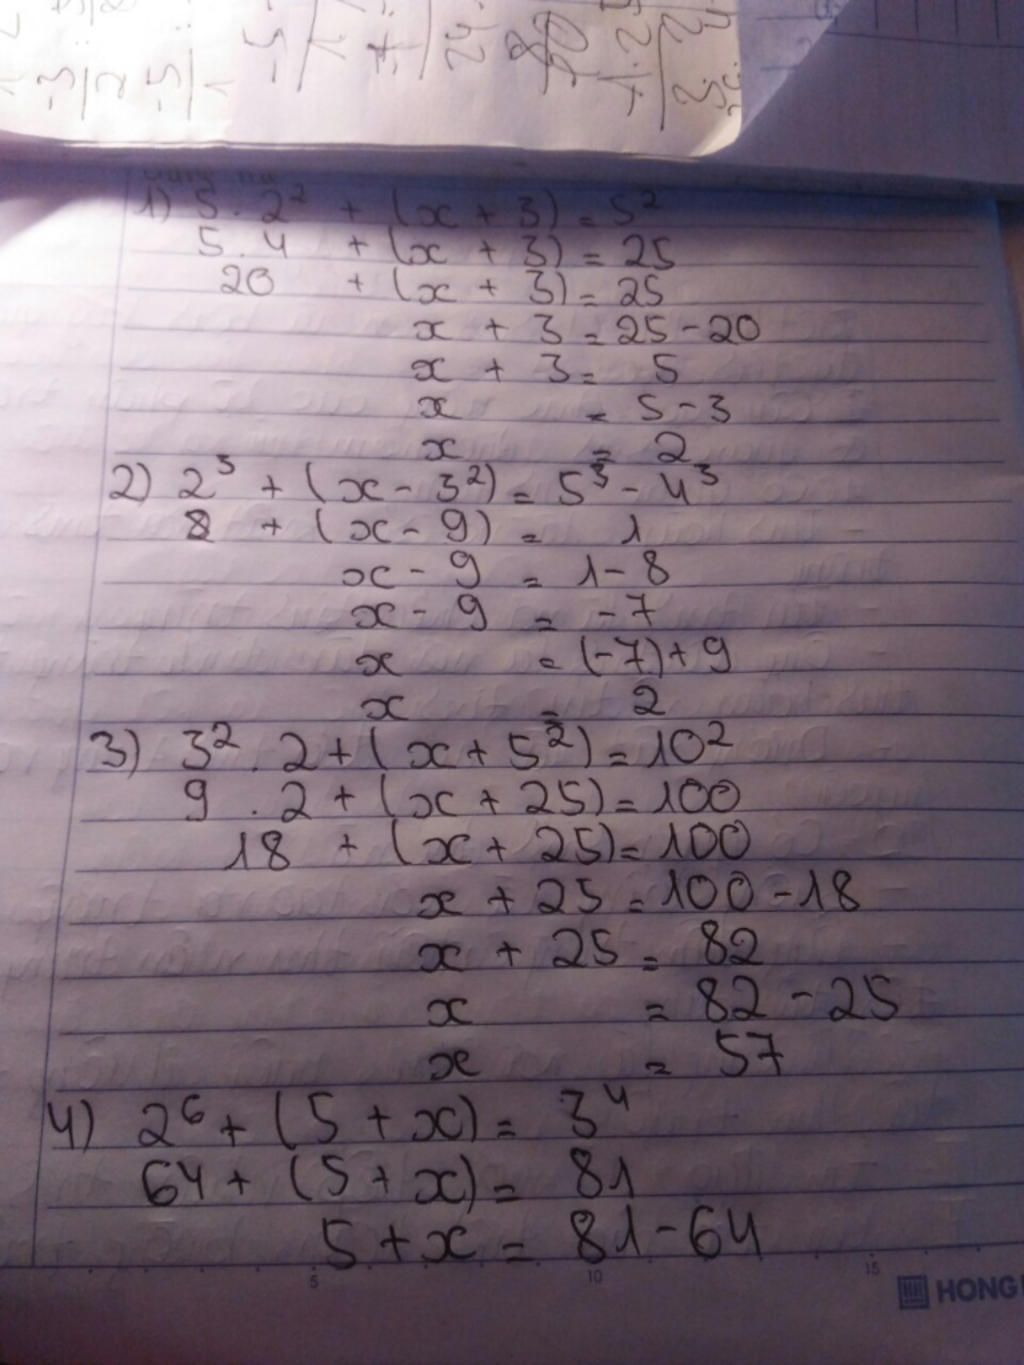 1) 5 . 2² + (x + 3) = 5²
5 . 4 + (x + 3) = 25
20 + (x + 3) = 25
x + 3 = 25 - 20
x + 3 = 5
x = 5 - 3
x = 2
2) 2³ + (x - 3²) = 5³ - 4³
8 + (x - 9) = 1
x - 9 = 1 - 8
x - 9 = -7
x = (-7) + 9
x = 2
3) 3² . 2 + (x + 5²) = 10²
9 . 2 + (x + 25) = 100
18 + (x + 25) = 100
x + 25 = 100 - 18
x + 25 = 82
x = 82 - 25
x = 57
4) 2⁶ + (5 + x) = 3⁴
64 + (5 + x) = 81
5 + x = 81 - 64
5 10 15
HONG